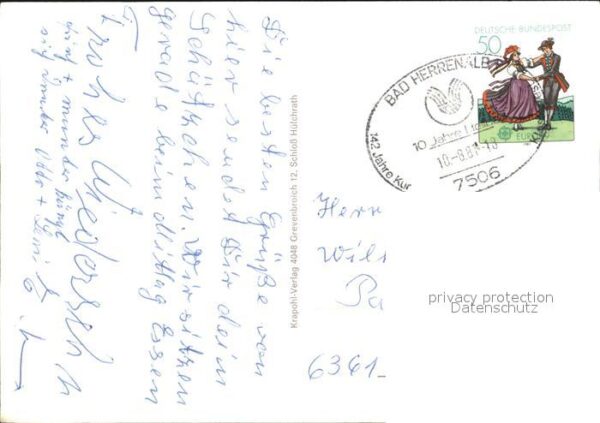 Die besten Grüße von
hier sendet Dir dein
Schätzchen. Wir sitzen
gerade beim Mittag Essen
Frohes Wiedersehn
sich Otto +
Krapohl-Verlag 4048 Grevenbroich 12, Schloß Hülchrath
DEUTSCHE BUNDESPOST
50
EUROPA
BAD HERRENALB
10 Jahre
142 Jahre Kur
7506
Herr
Wil
Pa
6361
privacy protection
Datenschutz